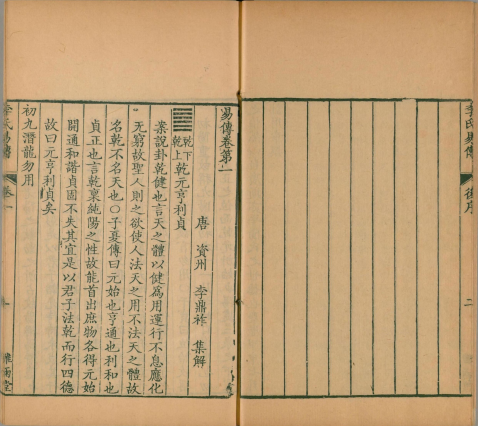 李氏易傳 後序 二
易傳卷第一
唐 資州 李鼎祚 集解
䷀ 乾下乾上 乾元亨利貞
案說卦乾健也言天之體以健爲用運行不息應化
无窮故聖人則之欲使人法天之用不法天之體故
名乾不名天也○子夏傳曰元始也亨通也利和也
貞正也言乾稟純陽之性故能首出庶物各得元始
開通和諧貞固不失其宜是以君子法乾而行四德
故曰元亨利貞矣
初九潛龍勿用
李氏易傳 卷一 一 雅雨堂